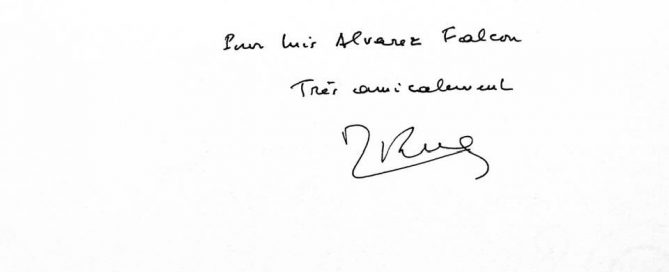 Pour Luis Alvarez Falcon
Très amicalement